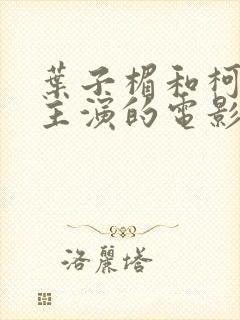 葉子楣和柯
主演的電影
洛麗塔